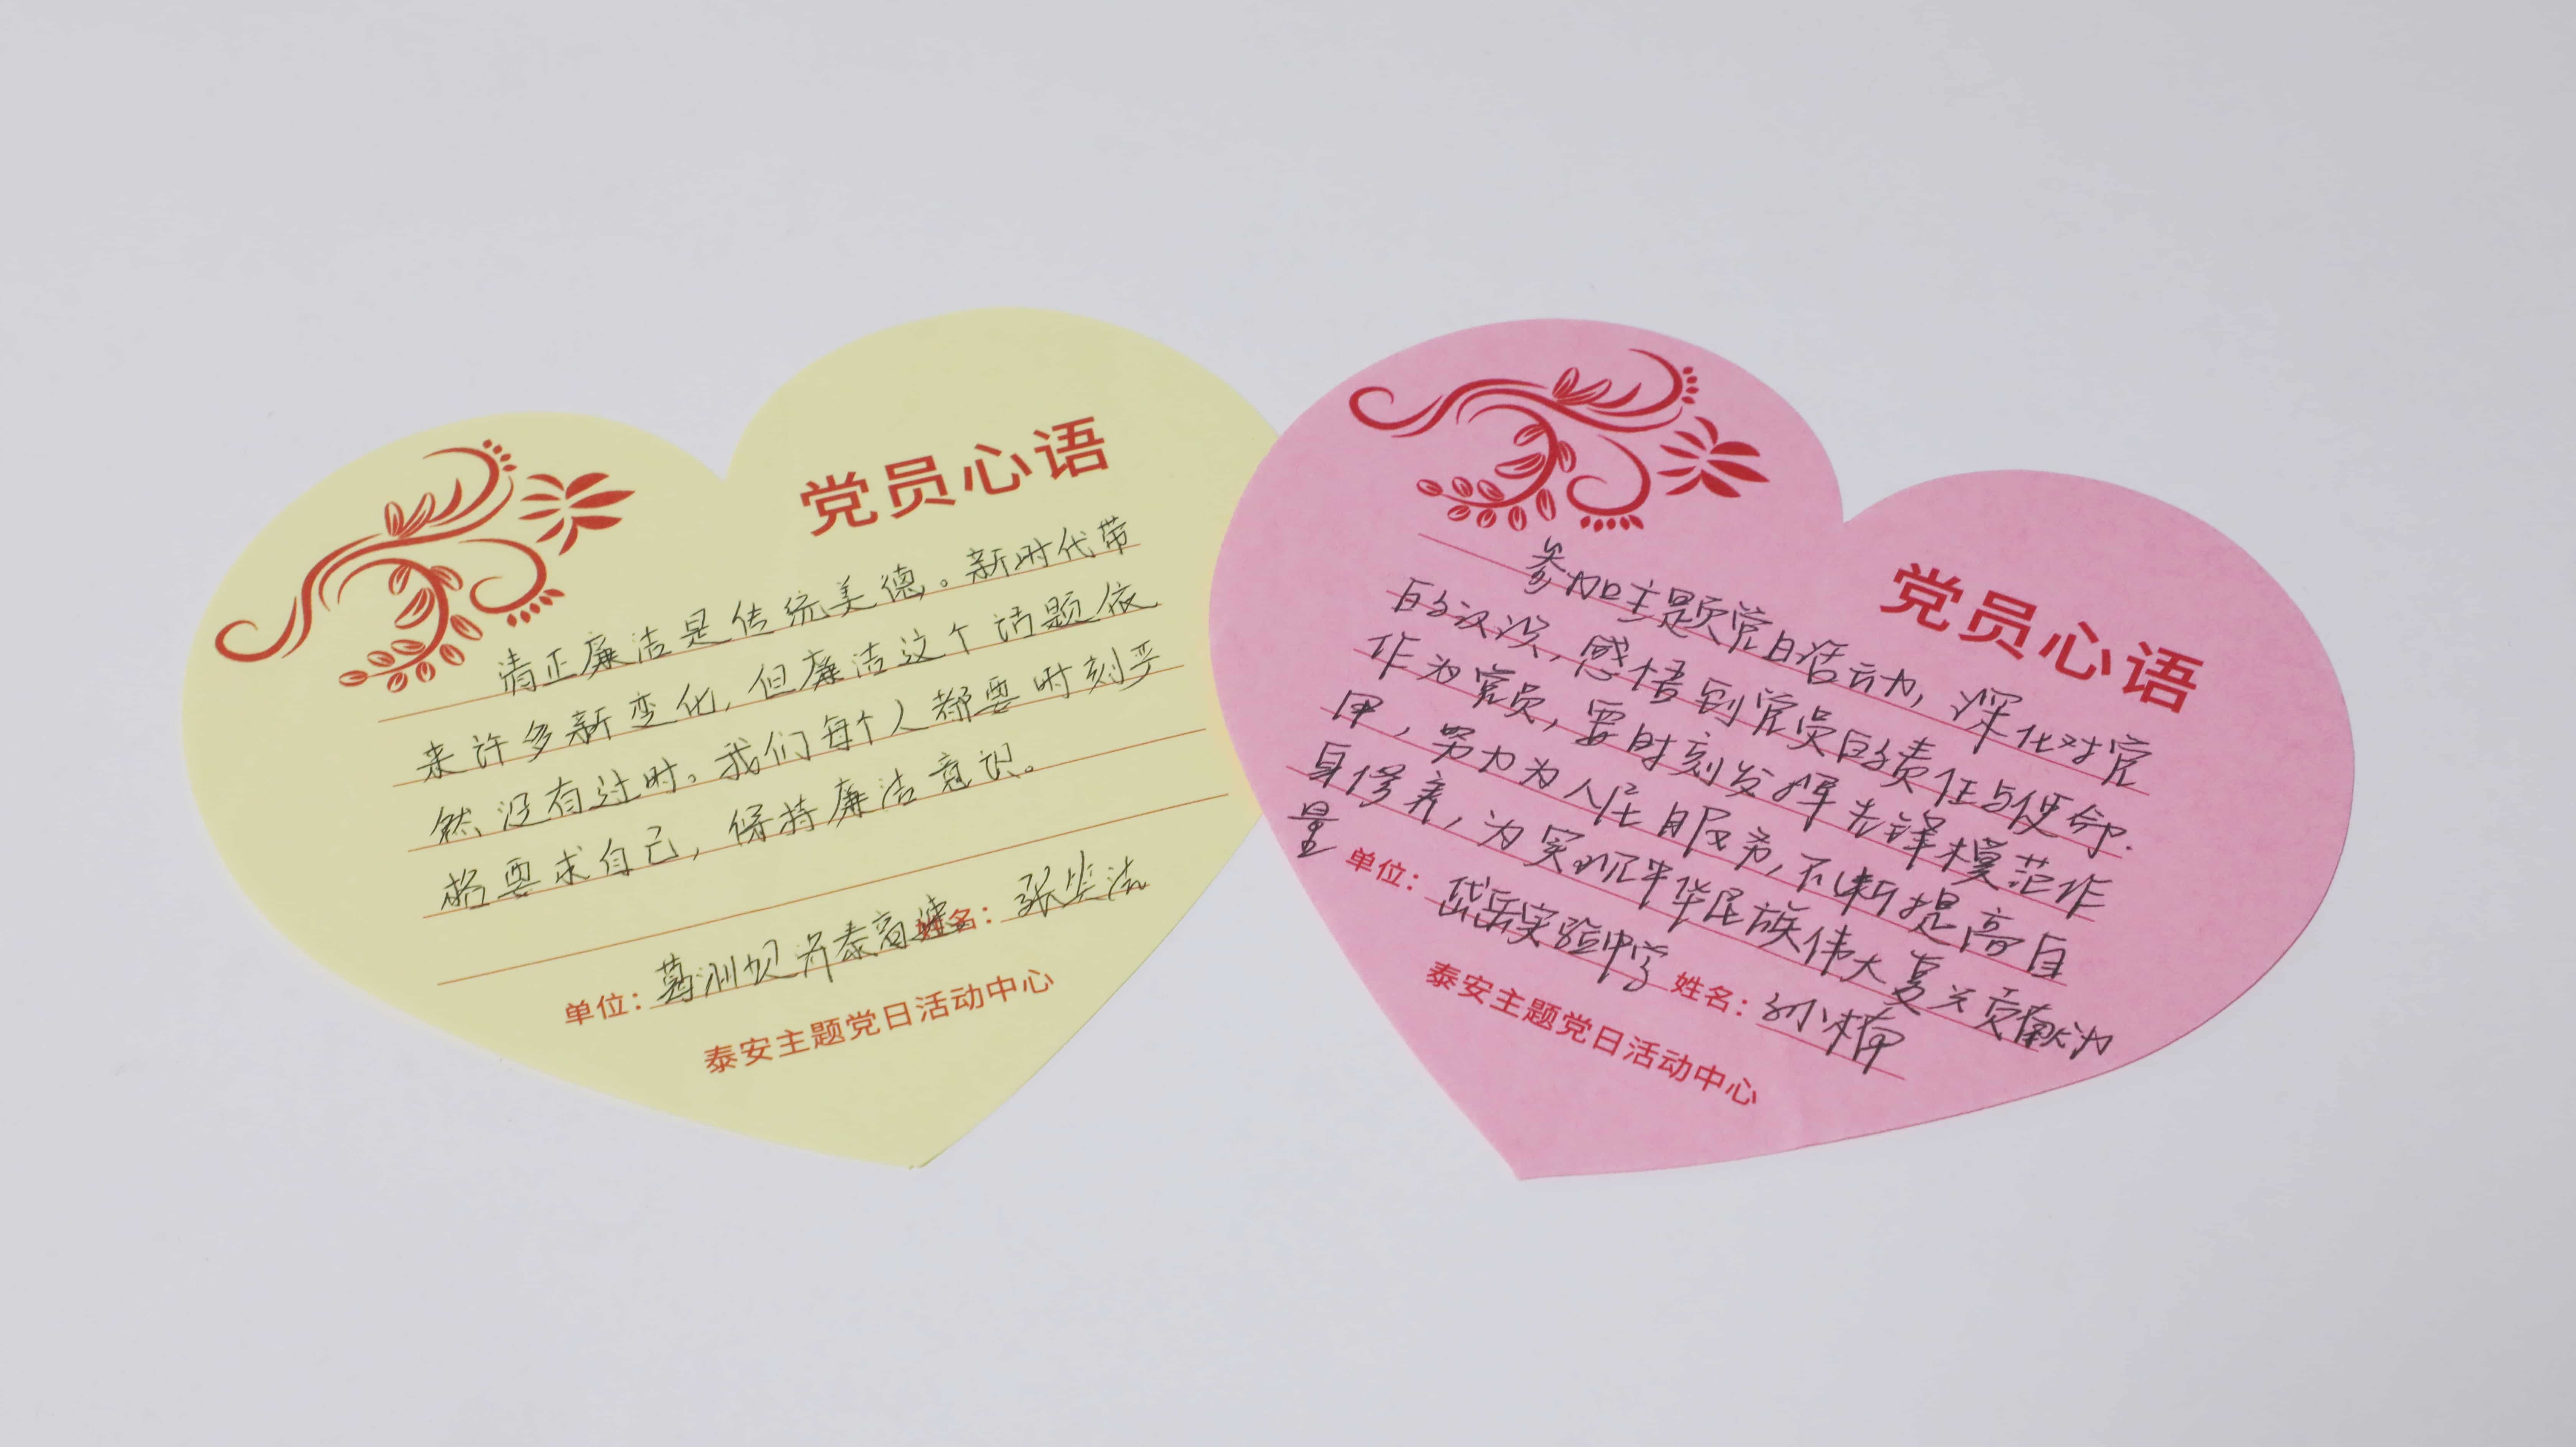 党员心语
清正廉洁是传统美德。新时代带
来许多新变化,但廉洁这个话题依
然没有过时。我们每个人都要时刻严
格要求自己,保持廉洁意识。
单位:葛洲坝济泰高速 姓名:张
泰安主题党日活动中心
党员心语
参加主题党日活动,深化对党
的认识,感悟到党员的责任与使命.
作为党员,要时刻发挥先锋模范作
用,努力为人民服务,不断提高自
身修养,为实现中华民族伟大复兴贡献力
量
单位:岱岳实验中学 姓名:孙小楠
泰安主题党日活动中心